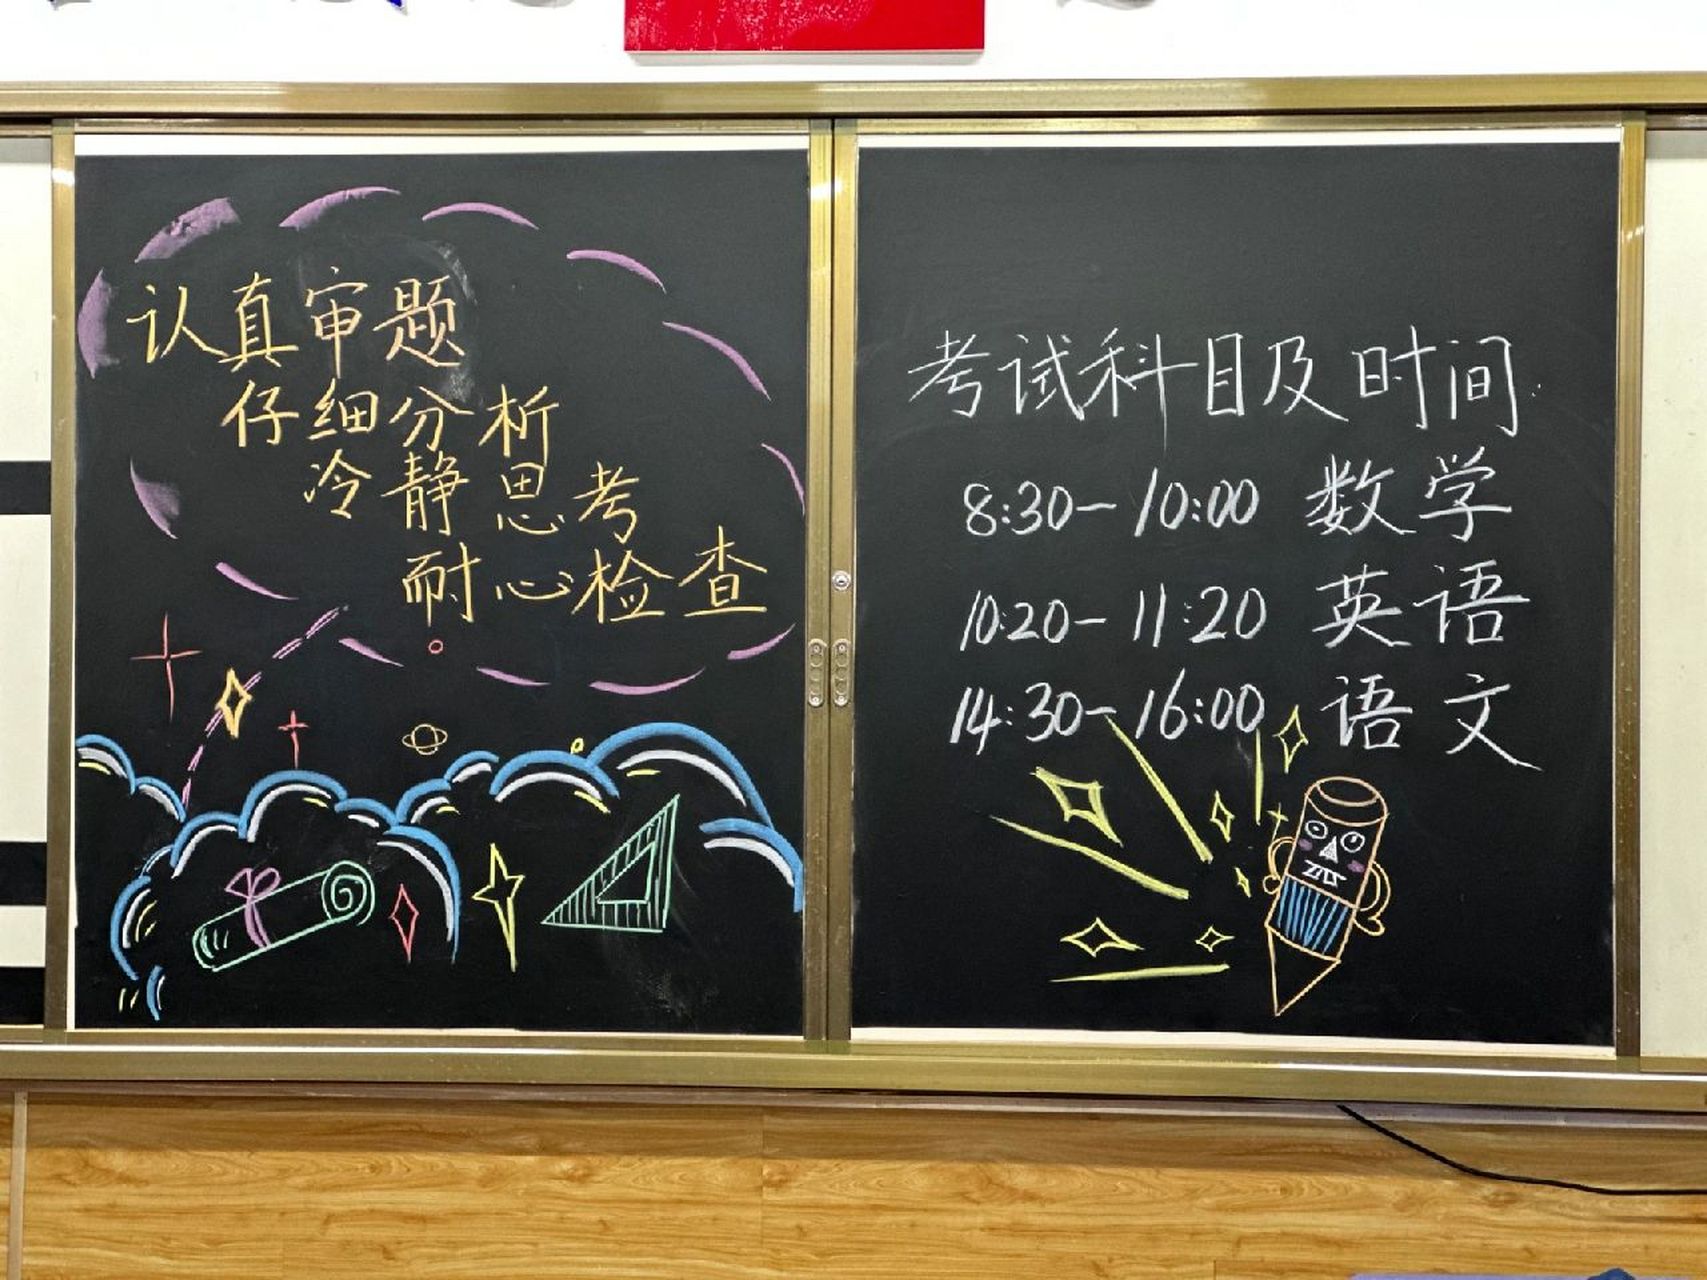 认真审题
仔细分析
冷静思考
耐心检查
考试科目及时间:
8:30-10:00 数学
10:20-11:20 英语
14:30-16:00 语文